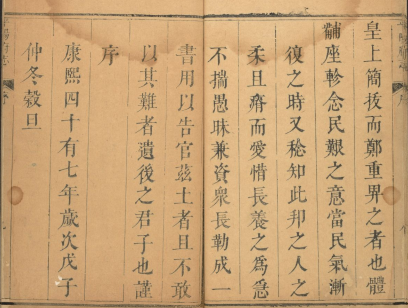 皇上簡抜而鄭重畀之者也體
黼座軫念民艱之意當民氣漸
復之時又稔知此邦之人之
柔且瘠而愛惜長養之為亟
不揣愚昧兼資衆長勒成一
書用以告官茲土者且不敢
以其難者遺後之君子也謹
序
康熙四十有七年歲次戊子
仲冬穀旦